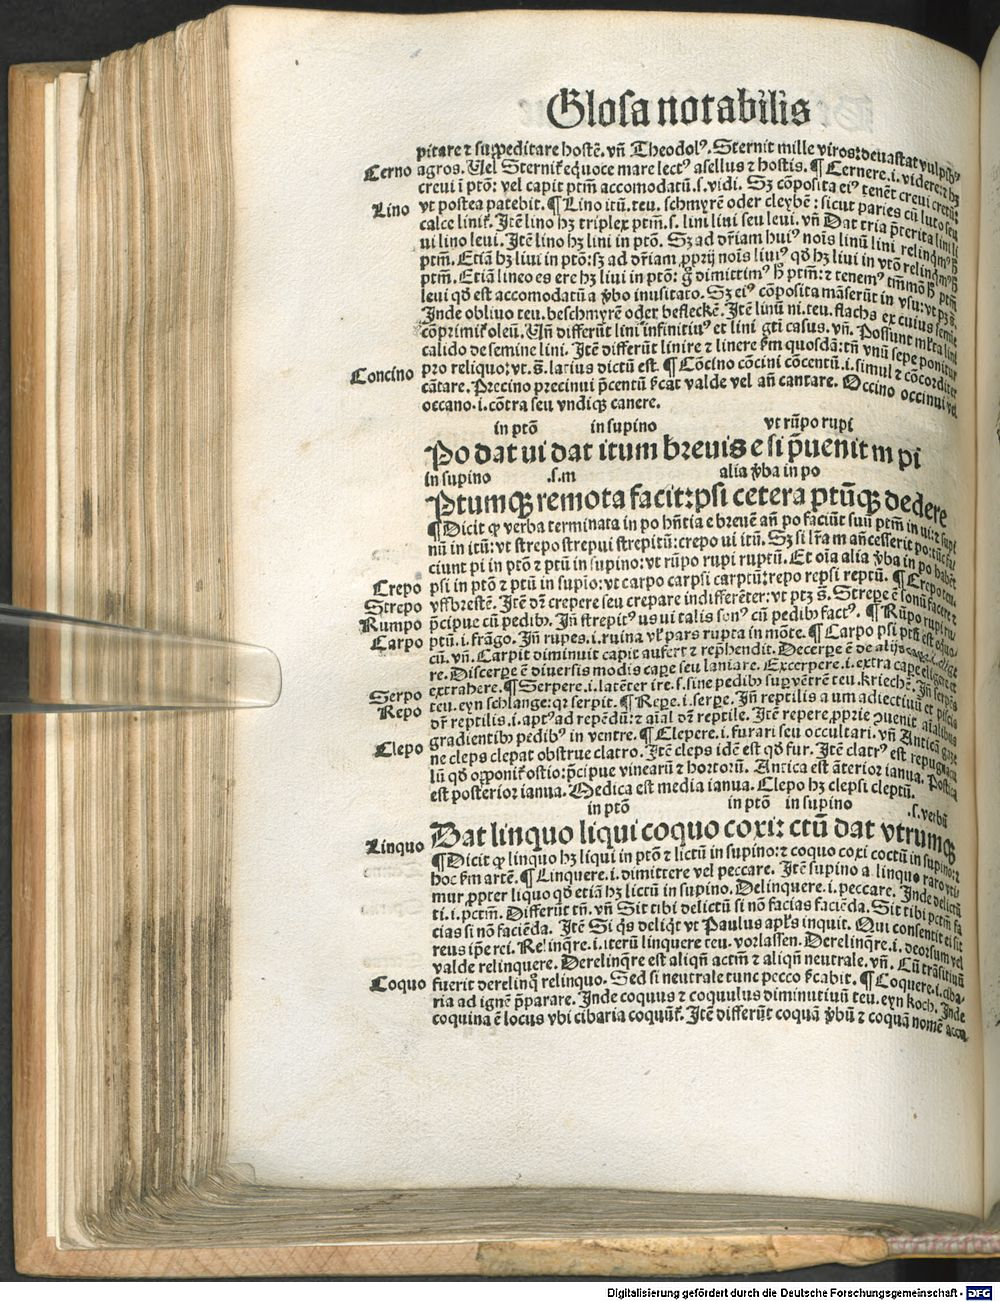 Glosa notabilis
pitare ⁊ suppeditare hostē. vñ Theodolꝰ. Sternit mille viros: deuastat vulpibꝰ
Cerno agros. Uel Sternit̃ equoce mare lectꝰ asellus ⁊ hostis. ¶ Cernere .i. videre: ⁊ hꝫ
creui ī ptō: vel capit ptm̄ accomodatū .s. vidi. Sꝫ cōposita eiꝰ tenēt creui cretū:
Lino vt postea patebit. ¶ Lino itū. teu. schmyrē oder cleybē: sicut paries cū luto seu
calce linit̃. Itē lino hꝫ triplex ptm̄ .s. lini liui seu leui. vñ Dat tria p̄terita lini li
ui lino leui. Itē lino hꝫ lini in ptō. Sꝫ ad dr̄iam huiꝰ nois linū lini relinqm̄ꝰ h̄
ptm̄. Etiā hꝫ liui in ptō: sꝫ ad dr̄iam ꝓprij nois liuiꝰ qd hꝫ liui in gtō relinqm̄ꝰ h̄
ptm̄. Etiā lineo es ere hꝫ liui in ptō: g̊ dimittimꝰ h̄ ptm̄: ⁊ tenemꝰ tm̄mō h̄ ptm̄
leui qd est accomodatū a v̄bo inusitato. Sꝫ eiꝰ cōposita māserūt in vsu: vt pꝫ s̄.
Inde obliuo teu. beschmyrē oder befleckē. Itē linū ni. teu. flachs ex cuius semie
cōprimit̃ oleū. Uñ differūt lini infinitiuꝰ et lini gti casus. vñ. Possunt mr̄ta lini
calido de semine lini. Itē differūt linire ⁊ linere s̄m quosdā: tñ vnū sepe ponitur
Concino pro reliquo: vt .s̄. latius dictū est. ¶ Cōcino cōcini cōcentū .i. simul ⁊ cōcorditer
cātare. Precino precinui p̄centū s̄cat valde vel añ cantare. Occino occinui vel
occano .i. cōtra seu vndiqꝫ canere.
in ptō in supino vt rūpo rupi
Po dat ui dat itum breuis e si p̄uenit m pi
in supino .s. m alia v̄ba in po
Ptumqꝫ remota facit: psi cetera ptūqꝫ dedere
¶ Dicit ꝙ verba terminata in po hñtia e breuē añ po faciūt suū ptm̄ in ui: ⁊ supi
nū in itū: vt strepo strepui strepitū: crepo ui itū. Sꝫ si lr̄a m añcesserit po: tūc fa
ciunt pi in ptō ⁊ ptū in supino: vt rūpo rupi ruptū. Et oīa alia v̄ba in po habēt
Crepo psi in ptō ⁊ ptū in supio: vt carpo carpsi carptū: repo repsi reptū. ¶ Crepo teu.
Strepo vffbrestē. Itē dr̄ crepere seu crepare indifferēter: vt ptꝫ s̄. Streꝑe ē sonū facere ⁊
Rumpo p̄cipue cū pedibꝰ. Iñ strepitꝰ us ui talis sonꝰ cū pedibꝰ factꝰ. ¶ Rūpo rupi ru
Carpo ptū .i. frāgo. Iñ rupes .i. ruina vl̄ pars rupta in mōte. ¶ Carpo psi ptū est equo
cū. vñ. Carpit diminuit capit aufert ⁊ rep̄hendit. Decerꝑe ē de alijs caꝑe .i. elige
re. Discerꝑe ē diuersis modis caꝑe seu laniare. Excerpere .i. extra caꝑe eligere et
Serpo extrahere. ¶ Serpere .i. latēter ire .s. sine pedibꝰ suꝑ vētrē teu. kriechē. Iñ serpēs
Repo teu. eyn schlange: qr serpit. ¶ Reꝑe .i. serꝑe. Iñ reptilis a um adiectiuū et piscis
dr̄ reptilis .i. aptꝰ ad repēdū: ⁊ aīal dr̄ reptile. Itē repere ꝓprie ꝯuenit aīalibus
gradientibꝰ pedibꝰ in ventre. ¶ Clepere .i. furari seu occultari. vñ Anticā gaze
Clepo ne cleps clepat obstrue clatro. Itē cleps idē est qd fur. Itē clatrꝰ est repugnacu
lū qd opponit̃ ostio: p̄cipue vinearū ⁊ hortorū. Antica est āterior ianua. Postica
est posterior ianua. Medica est media ianua. Clepo hꝫ clepsi cleptū.
in ptō in ptō in supino .s. verbū
Linquo Dat linquo liqui coquo coxi: ctū dat vtrumqꝫ
¶ Dicit ꝙ linquo hꝫ liqui in ptō ⁊ lictū in supino: ⁊ coquo coxi coctū in supino: ⁊
hoc s̄m artē. ¶ Linquere .i. dimittere vel peccare. Itē supino a linquo raro vti
mur ꝓpter liquo qd etiā hꝫ lictū in supino. Delinquere .i. peccare. Inde delictū
ti .i. pctm̄. Differūt tñ. vñ Sit tibi delictū si nō facias faciēda. Sit tibi pctm̄ fa
cias si nō faciēda. Itē Si q̇s deliq̇t vt Paulus apl̄s inquit. Qui consentit ei sit
reus ip̄e rei. Relinq̄re .i. iterū linquere teu. vorlassen. Derelinq̄re .i. deorsum vel
valde relinquere. Derelinq̄re est aliqñ actm̄ ⁊ aliqñ neutrale. vñ. Cū trāsitiuū
Coquo fuerit derelinq̄ relinquo. Sed si neutrale tunc pecco s̄cabit. ¶ Coquere .i. ciba-
ria ad ignē p̄parare. Inde coquus ⁊ coquulus diminutiuū teu. eyn koch. Inde
coquina ē locus vbi cibaria coquūt̃. Itē differūt coquā v̄bū ⁊ coquā nomē accu.
Digitalisierung gefördert durch die Deutsche Forschungsgemeinschaft - DFG